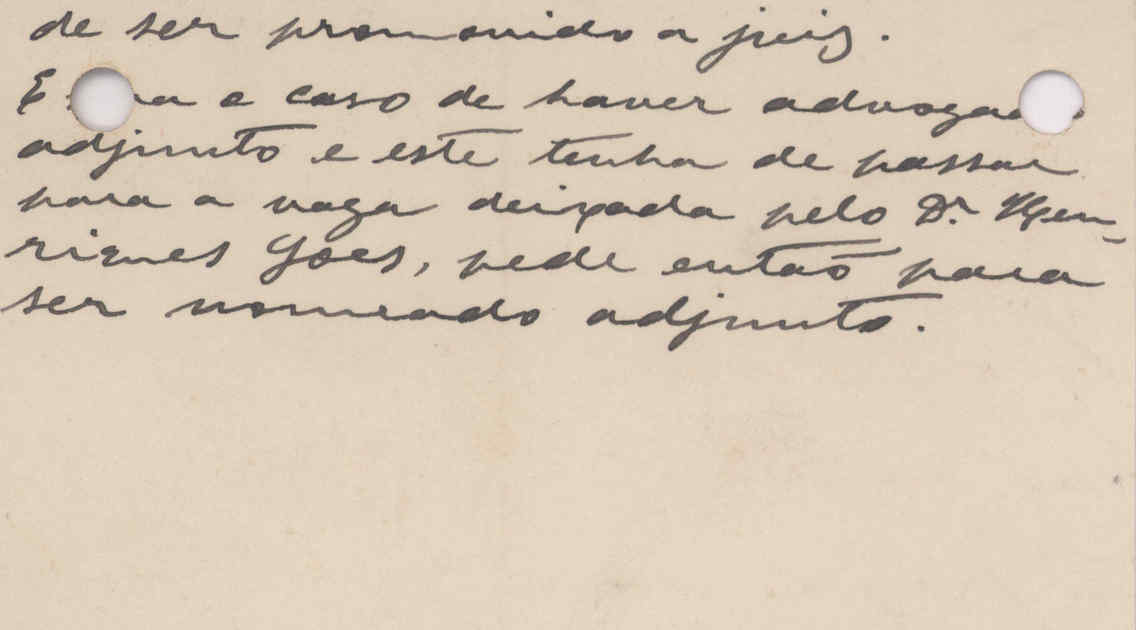 de ser promovido a juiz.
e caso de haver
adjunto e este tenha de passar
para a vaga deixada pelo Dr. Hen-
riques Goes, pede então para
ser nomeado adjunto.